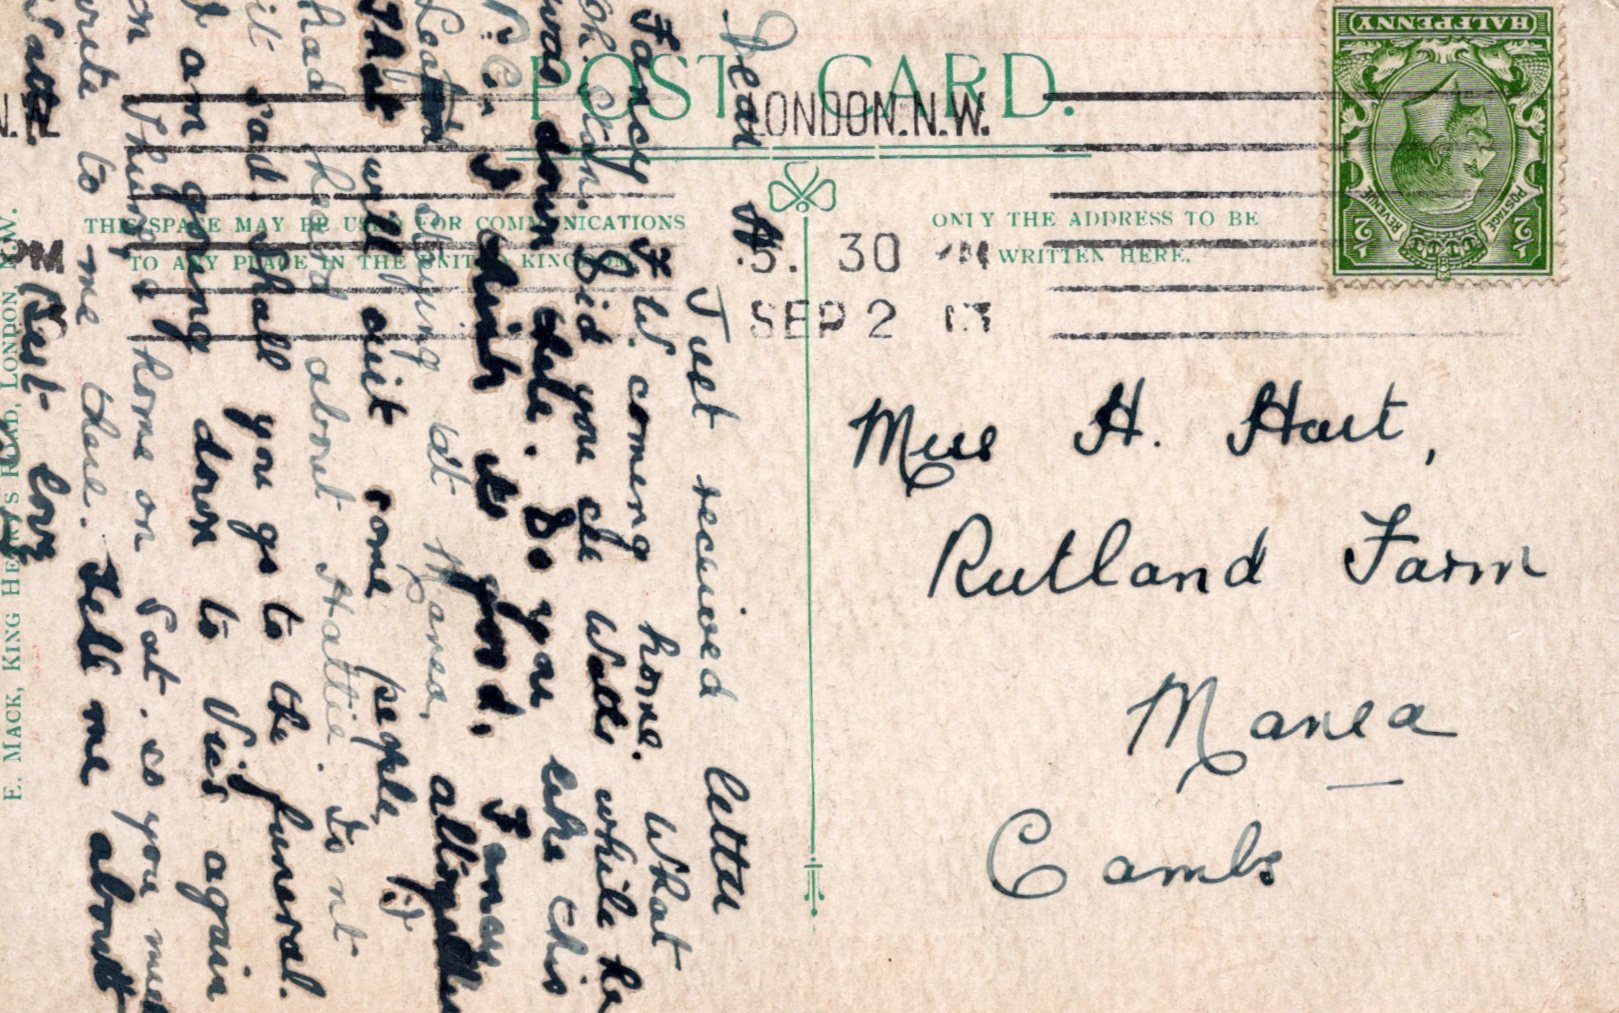 POST CARD.
THE SPACE MAY BE USED FOR COMMUNICATIONS
TO ANY PLACE IN THE UNITED KINGDOM
ONLY THE ADDRESS TO BE
WRITTEN HERE.
HALFPENNY
POSTAGE
REVENUE
½ ½
LONDON. N.W.
5. 30 PM
SEP 2 13
PM
E. MACK, KING HENRY'S ROAD, LONDON, N.W.
Miss H. Hart,
Rutland Farm
Manea
Cambs
Dear H
Just received letter
Fancy F.W. coming home. What
Oh. Stan. Did you see Walls while he
was down there. Do you like this
P.C. I think its good. Fancy
staying at Manea, altogether
That will suit some people, if
had heard about Hattie. Isnt
it sad. Shall you go to the funeral.
I am going down to Vis again
on Thurs, home on Sat. so you must
write to me there. Tell me about
Best love